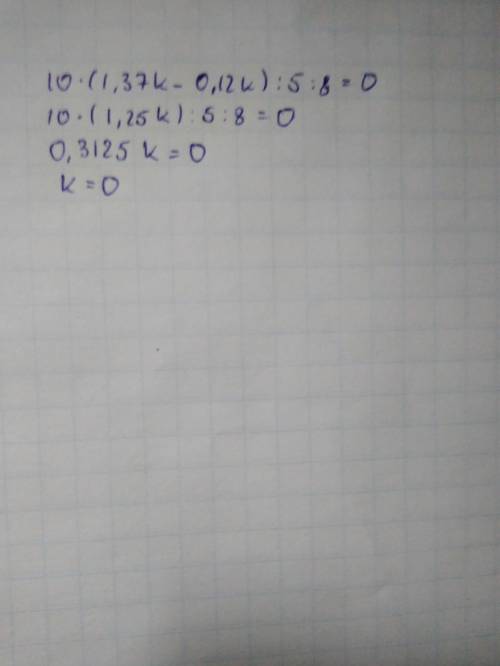 10·(1,37k - 0,12k):5:8=0
10·(1,25k):5:8=0
0,3125 k=0
k=0